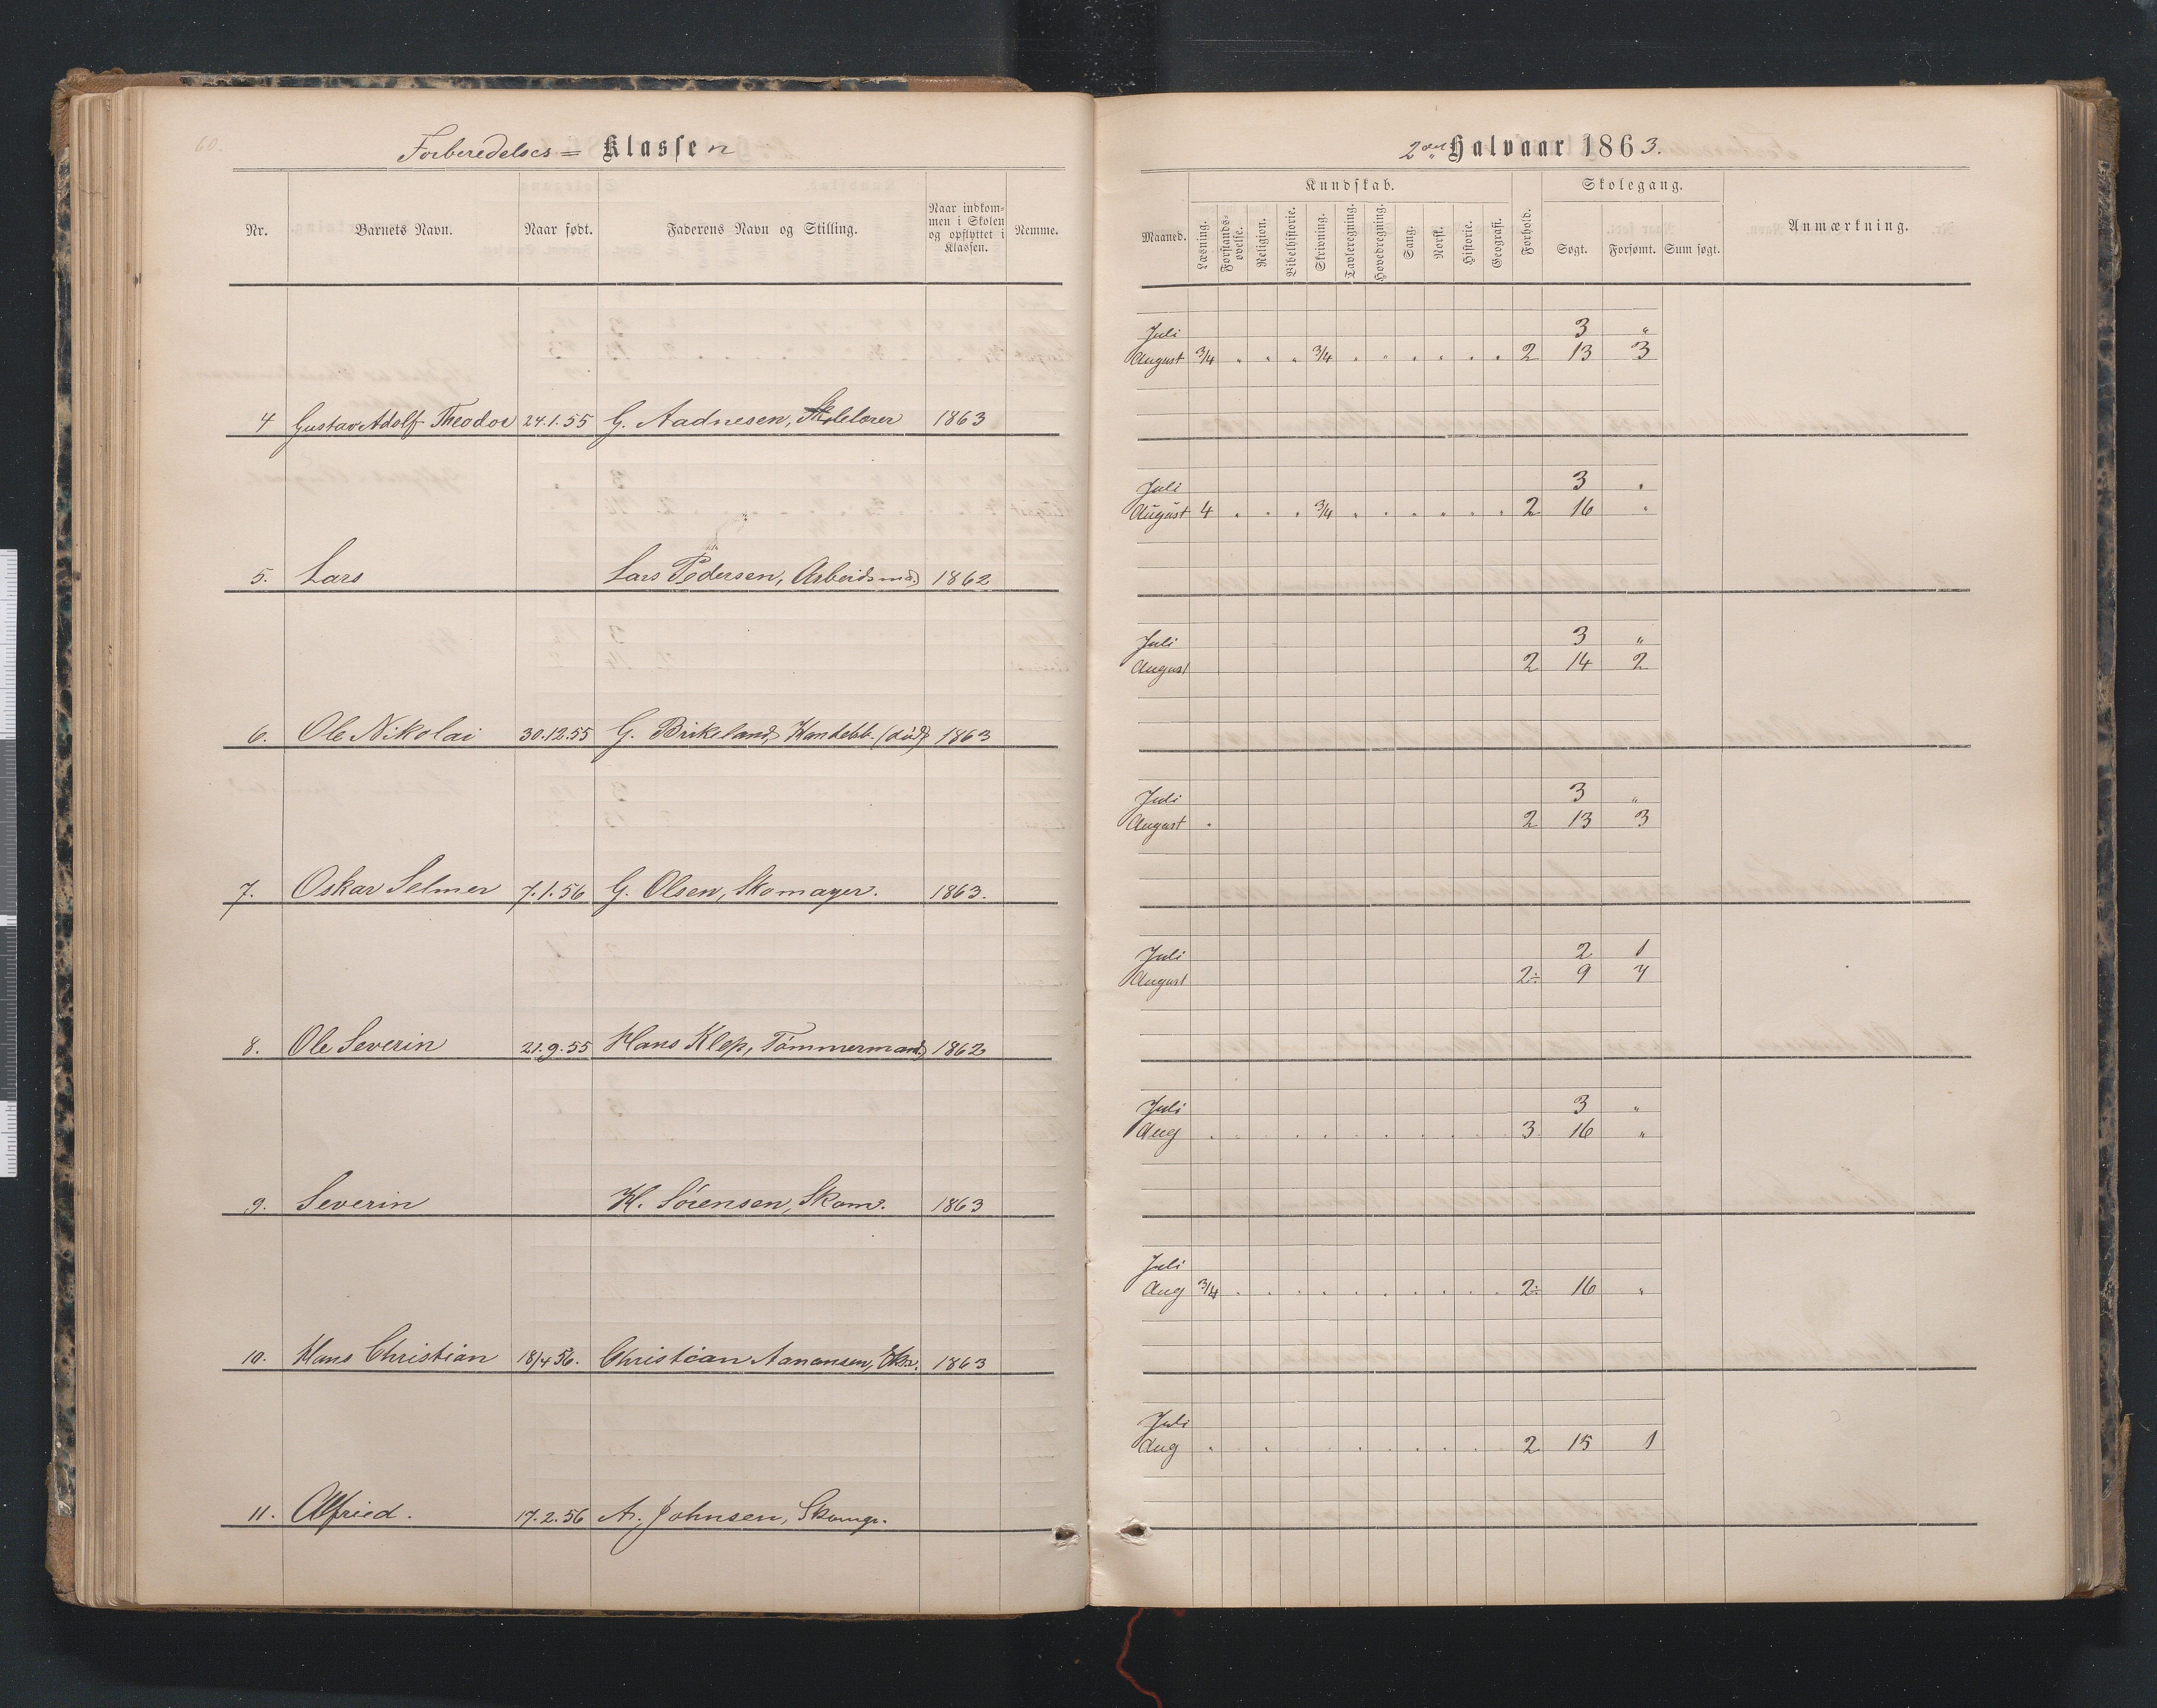 60.
Forberedelses= Klassen
Nr. Barnets Navn. Naar født. Faderens Navn og Stilling. Naar indkommen i Skolen og opflyttet i Klassen. Nemme.
4 Gustav Adolf Theodor 24.1.55 G. Aadnesen, Skolelærer 1863
5. Lars Lars Pedersen, Arbeidsmd. 1862
6. Ole Nikolai 30.12.55 G. Birkeland, (død) 1863
7. Oskar Selmer 7.1.56 G. Olsen, Skomager. 1863.
8. Ole Severin 21.9.55 Hans Klep, Tømmermand 1862
9. Severin H. Sørensen, Skom. 1863
10. Hans Christian 18/4 56. Christian Aanensen, 1863
11. Alfried. 17.2.56 A. Johnsen, Skomgr.
2det Halvaar 1863.
Kundskab. Skolegang.
Maaned. Læsning. Forstandsøvelse. Religion. Bibelhistorie. Skrivning. Tavleregning. Hovedregning. Sang. Norsk. Historie. Geografi. Forhold. Søgt. Forsømt. Sum søgt. Anmærkning.
Juli 3 "
August 3/4 " " " 3/4 " " " " " " 2 13 3
Juli 3 "
August 4 " " " 3/4 " " " " " " 2 16 "
Juli 3 "
August 2 14 2
Juli 3 "
August " 2 13 3
Juli 2 1
August 2÷ 9 7
Juli 3 "
Aug . . . . . . . . . . . 3 16 "
Juli
Aug 3/4 . . . . . . . . . . 2÷ 16 "
Juli
Aug . . . . . . . . . 2 15 1